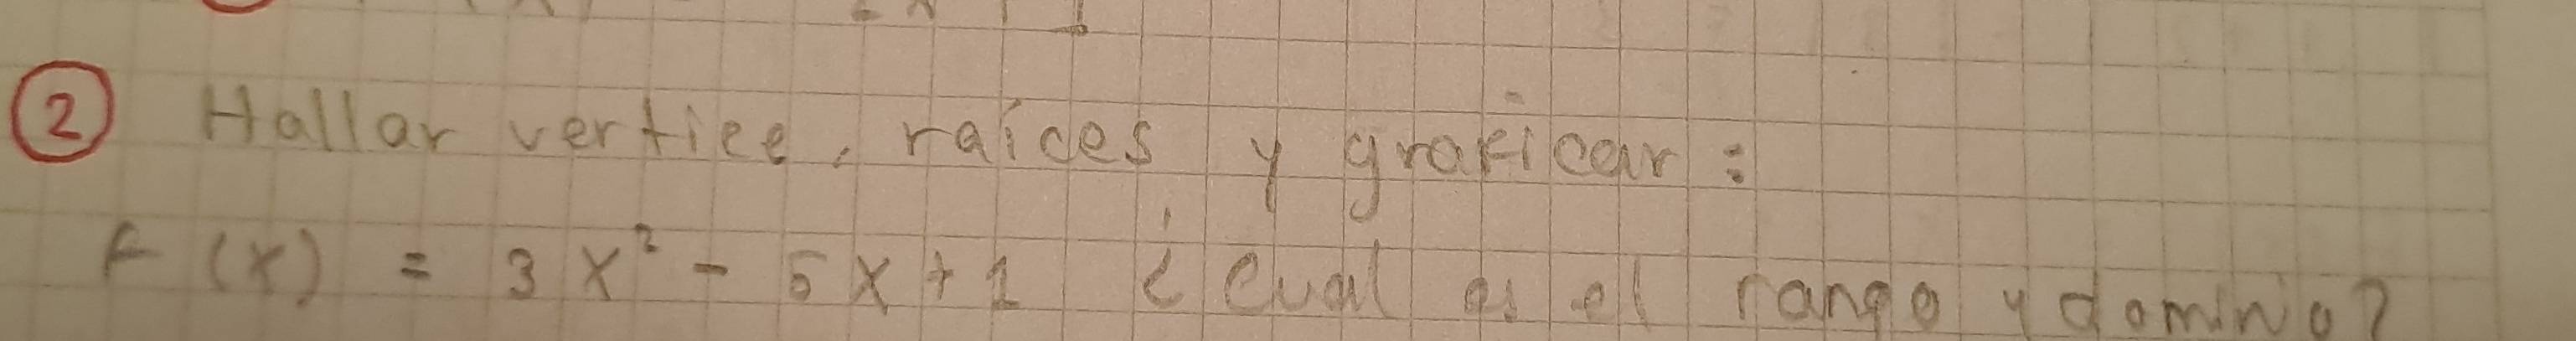 ② Hallar vertice, raíces y graficar:
F(x) = 3x² - 5x + 1 ¿Cual es el rango y dominio?